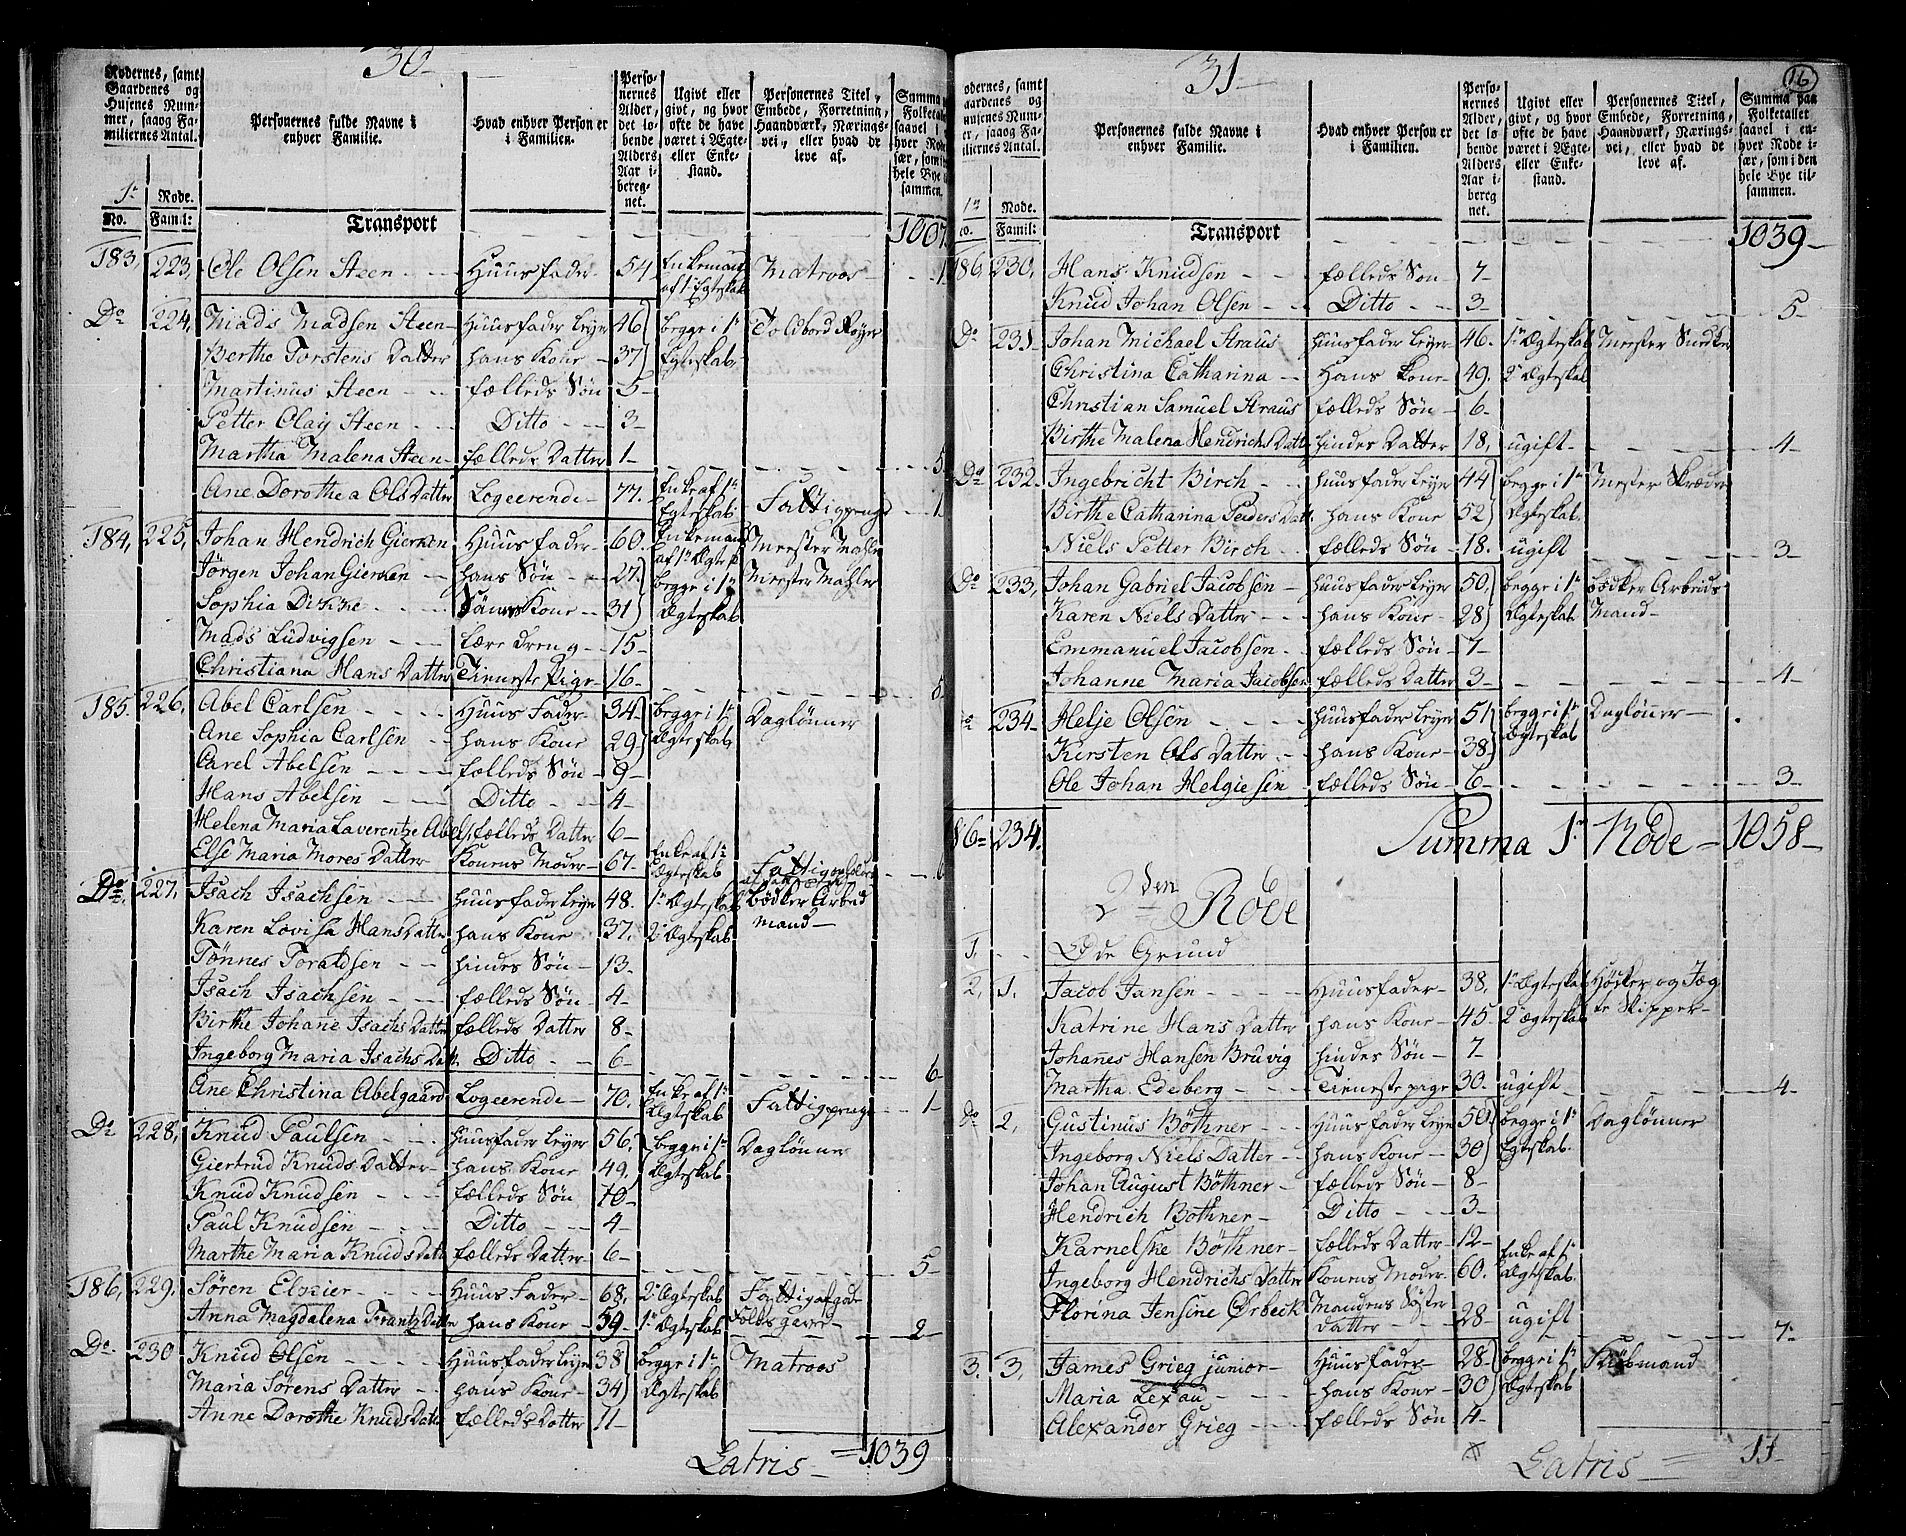 30
Rodernes, samt Gaardenes og Husenes Nummer, saaog Familiernes Antal.
Personernes fulde Navne i enhver Familie.
Hvad enhver Person er i Familien.
Personernes Alder, det løbende Alders Aar iberegnet.
Ugivt eller givt, og hvor ofte de have været i Ægte- eller Enkestand.
Personernes Titel, Embede, Forretning, Haandværk, Næringsvei, eller hvad de leve af.
Summa Folketallet saavel i hver Rode især, som i hele Bye sammen.
1te Rode.
No. Famil:
Transport 1007.
183, 223, Ole Olsen Steen Huusfader 54 Enkemand af 1 Egteskab Matroos 1
Do 224, Mads Madsen Steen Huusfader leyer 46 begge i 1te Egteskab Toldbord Royer
Berthe Torstens Datter hans Kone 37
Martinus Steen fælleds Søn 5
Petter Olay Steen Ditto 3
Martha Malena Steen fælleds Datter 1 5
Ane Dorothea Ols Datter Logeerende 77. Enke af 1te Egteskab Fattigpenge 1
184, 225, Johan Hendrich Gierken Huusfader 60. Enkemand af 1te Ægtes Meester Mahler
Jørgen Johan Gierken hans Søn 27. begge i 1te Ægteskab Meester Mahler
Sophia Dikke Søns Kone 31
Mads Ludvigsen Lære dreng 15
Christiana Hans Datter Tieneste Pige 16 5
185. 226, Abel Carlsen Huus Fader 34 begge i 1te Ægteskab Daglønner
Ane Sophia Carlsen hans Kone 29
Carel Abelsen fælleds Søn 9
Hans Abelsen Ditto 4
Helena Maria Laverentze Abels fælleds Datter 6
Else Maria Mores Datter Konens Moder 67 Enke af 1te Ægteskab 6
Do, 227, Isach Isachsen huusfader leyer 48. 1te Ægteskab Bødker Arbeidsmand
Karen Lovisa Hans Datter hans Kone 37. 2 Ægteskab
Tønnes Toraldsen hindes Søn 13
Isach Isachsen fælleds Søn 4
Birthe Johane Isachs Datter fælleds Datter 8
Ingeborg Maria Isachs Datt. Ditto 6 6
Ane Christina Abelgaard Logeerende 70. Enke af 1te Ægteskab Fattigpenge 1
Do 228, Knud Paulsen huusfader leyer 56. begge i 1te Ægteskab Daglønner
Giertrud Knuds Datter hans Kone 49.
Knud Knudsen fælleds Søn 10
Paul Knudsen Ditto 4
Marthe Maria Knuds Datt fælleds Datter 6 5
186, 229. Søren Huus Fader 68, 2 Ægteskab Fattig af gode Folks gaver
Anna Magdalena Frantz Datter hans Kone 59 1te Ægteskab 2
Do 230 Knud Olsen Huusfader leyer 38 begge i 1te Ægteskab Matroos
Maria Sørens Datter hans Kone 34
Anne Dorothe Knuds Datt fælleds Datter 11
Latris = 1039
31
16
odernes, samt aardenes og usenes Nummer, saaog Familiernes Antal.
Personernes fulde Navne i enhver Familie.
Hvad enhver Person er i Familien.
Personernes Alder, det løbende Alders Aar iberegnet.
Ugivt eller givt, og hvor ofte de have været i Ægte- eller Enkestand.
Personernes Titel, Embede, Forretning, Haandværk, Næringsvei, eller hvad de leve af.
Summa paa Folketallet saavel i enhver Rode især, som i den hele Bye tilsammen.
1te Rode.
o. Famil:
Transport 1039
186 230, Hans Knudsen fælleds Søn 7
Knud Johan Olsen Ditto 3 5
Do 231. Johan Michael Straus huusfader leyer 46. 1te Ægteskab Meester Snedker
Christina Catharina Hans Kone 49. 2 Ægteskab
Christian Samuel Straus fælleds Søn 6
Birthe Malena Hendrichs Datt hindes Datter 18, ugift 4
Do 232. Ingebricht Birch huusfader leyer 44 begge i 1te Ægteskab Mester Skræder
Birthe Catharina Peders Datt. hans Kone 52
Niels Petter Birch fælleds Søn 18. ugift 3
Do 233, Johan Gabriel Jacobsen huusfader leyer 50, begge i 1te Ægteskab bødker Arbeids Mand
Karen Niels Datter hans Kone 28
Emmanuel Jacobsen fælleds Søn 7
Johanne Maria Jacobsen fælleds Datter 3 4
Do 234 Helje Olsen huusfader leyer 51 begge i 1te Ægteskab Daglønner
Kirsten Ols Datter hans Kone 38
Ole Johan Helgiesen fælleds Søn 6 3
86 234. Summa 1te Rode 1058
2den Rode
1. Øde Grund
2, 1. Jacob Jansen Huusfader 38, 1te Ægteskab Høcker og Jægte Skipper
Katrine Hans Datter hans Kone 45 2 Ægteskab
Johanes Hansen Bruvig hindes Søn 7
Martha Edeberg Tieneste pige 30. ugift 4
Do 2, Gustinus Bøthner Huusfader leyer 50 begge i 1te Egteskab. Daglønner
Ingeborg Niels Datter hans Kone 30
Johan August Bøthner fælleds Søn 8
Hendrich Bøthner Ditto 3
Karnelske Bøthner fælleds Datter 12
Ingeborg Hendrichs Datter Konens Moder 60. Enke af 1te Ægteskab.
Florina Jensine Ørbeck Mandens Syster datter 28 ugift 7
3. 3, James Grieg junior Huusfader 28 begge i 1te Ægteskab Kiøbmand
Maria Lexau hans Kone 30
Alexander Grieg fælleds Søn 4
Latris = 11